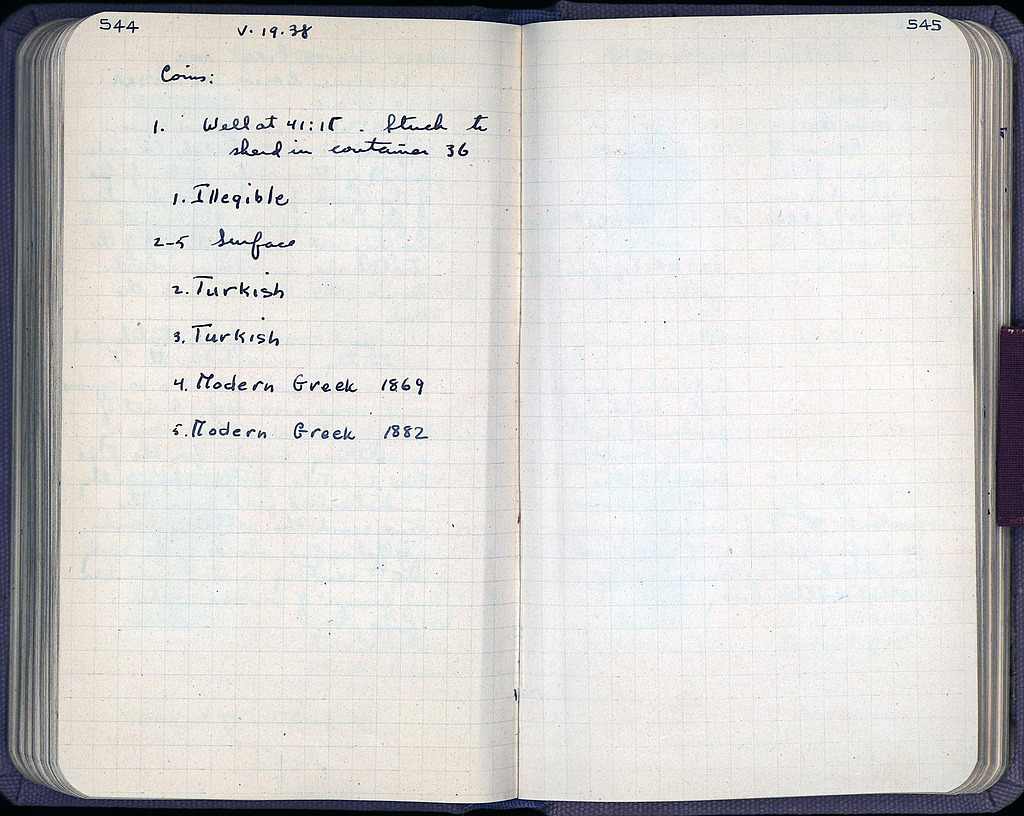 544
V.19.38
Coins:
1. Well at 41:ΙΓ. Stuck to
sherd in container 36
1. Illegible
2-5 Surface
2. Turkish
3. Turkish
4. Modern Greek 1869
5. Modern Greek 1882
545